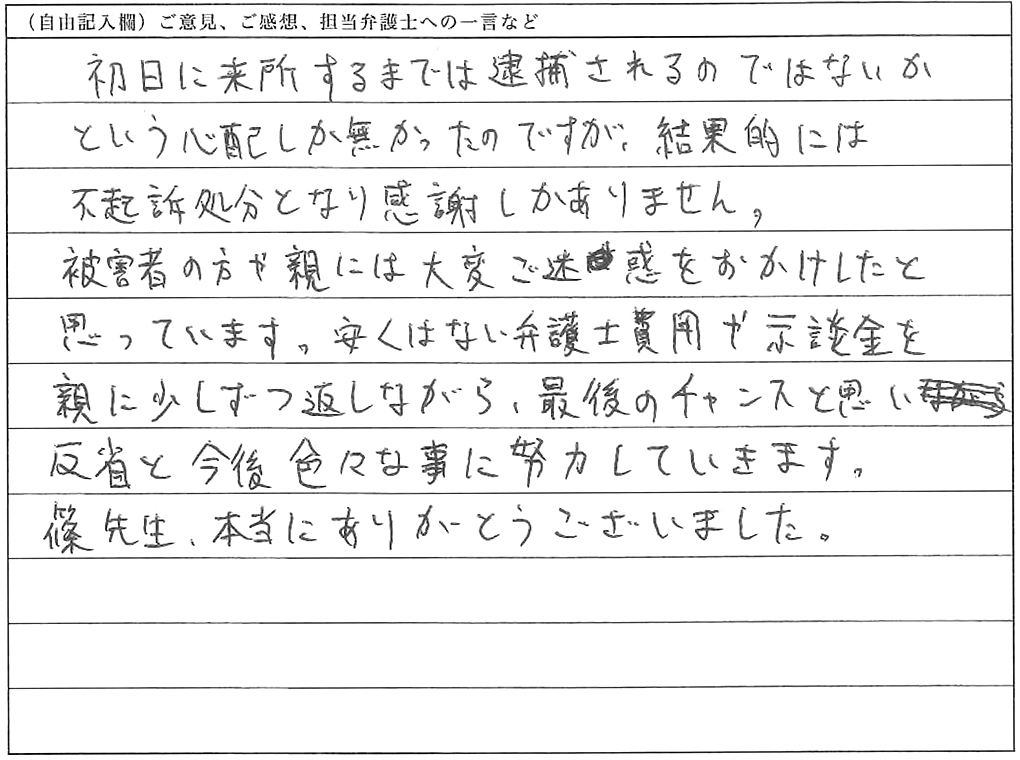 （自由記入欄）ご意見、ご感想、担当弁護士への一言など
初日に来所するまでは逮捕されるのではないか
という心配しか無かったのですが、結果的には
不起訴処分となり感謝しかありません。
被害者の方や親には大変ご迷惑をおかけしたと
思っています。安くはない弁護士費用や示談金を
親に少しずつ返しながら、最後のチャンスと思い
反省と今後色々な事に努力していきます。
篠先生、本当にありがとうございました。